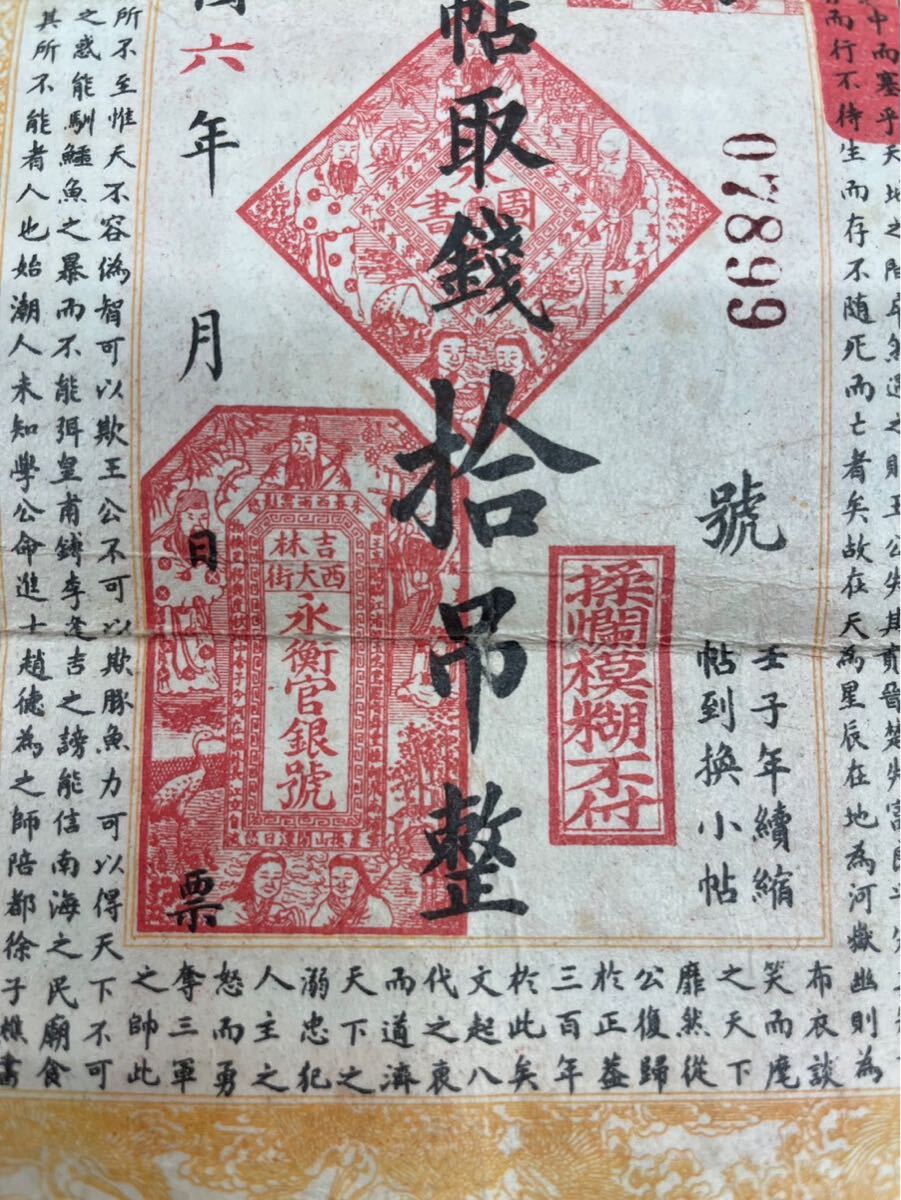 中而塞乎天地之間卒然遇之則王公失其貴晉楚失
而行不待生而存不隨死而亡者矣故在天為星辰在地為河嶽幽則為
布衣談
笑而麾
之天下
靡然從
公復歸
於正蓋
三百年
於此矣
文起八
代之衰
而道濟
天下之
溺忠犯
人主之
怒而勇
奪三軍
之帥此
07899
號
壬子年續縮
帖到換小帖
揉爛模糊不付
帖取錢拾吊整
圖書
六年月日票
吉林
西大街
永衡官銀號
所不至惟天不容偽智可以欺王公不可以欺豚魚力可以得天下不可
之惑能馴鱷魚之暴而不能弭皇甫鎛李逢吉之謗能信南海之民廟食
其所不能者人也始潮人未知學公命進士趙德為之師陪都徐子樵書